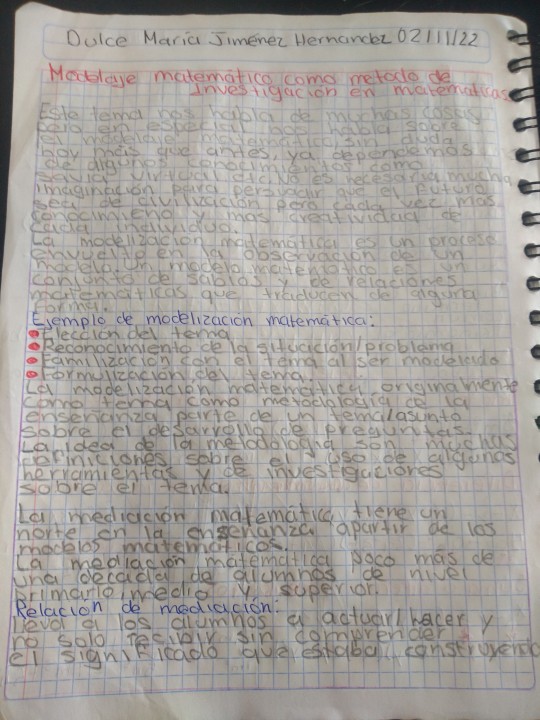 Dulce María Jiménez Hernandez 02/11/22
Modelaje matemático como metodo de
investigación en matematicas
Este tema nos habla de muchas cosas
pero en especial nos habla sobre
el modelo matemático, sin duda
hoy más que antes, ya dependemos
de algunos conocimientos, no
virtual, no es necesaria mucha
imaginación para persuadir que el futuro
sea de civilización para cada vez mas
conocimieno y mas creatividad de
cada individuo.
La modelización matemática es un proceso
envuelto en la observación de un
modelo. Un modelo matemático es un
conjunto de sablos y de relaciones
matemáticas que traducen de alguna
forma.
Ejemplo de modelización matemática:
• Elección del tema
• Reconocimiento de la situación/problama
• Familización con el tema al ser modeleido
• Formulización del tema.
La modelización matemática originalmente
como tema como metodalogia de la
enseñanza parte de un tema/asunto
sobre el desarrollo de preguntas.
La idea de la metodologia son muchas
definiciones sobre el uso de algunos
herramientas y de investigaciones
sobre el tema.
La mediación matemática tiene un
norte en la enseñanza apartir de los
modelos matemáticos.
La mediación matemática poco más de
una decada de alumnos de nivel
primario, medio y superior.
Relacion de mediación:
Leva a los alumnos a actuar/hacer y
no solo recibir sin comprender
el significado que estaba construyendo